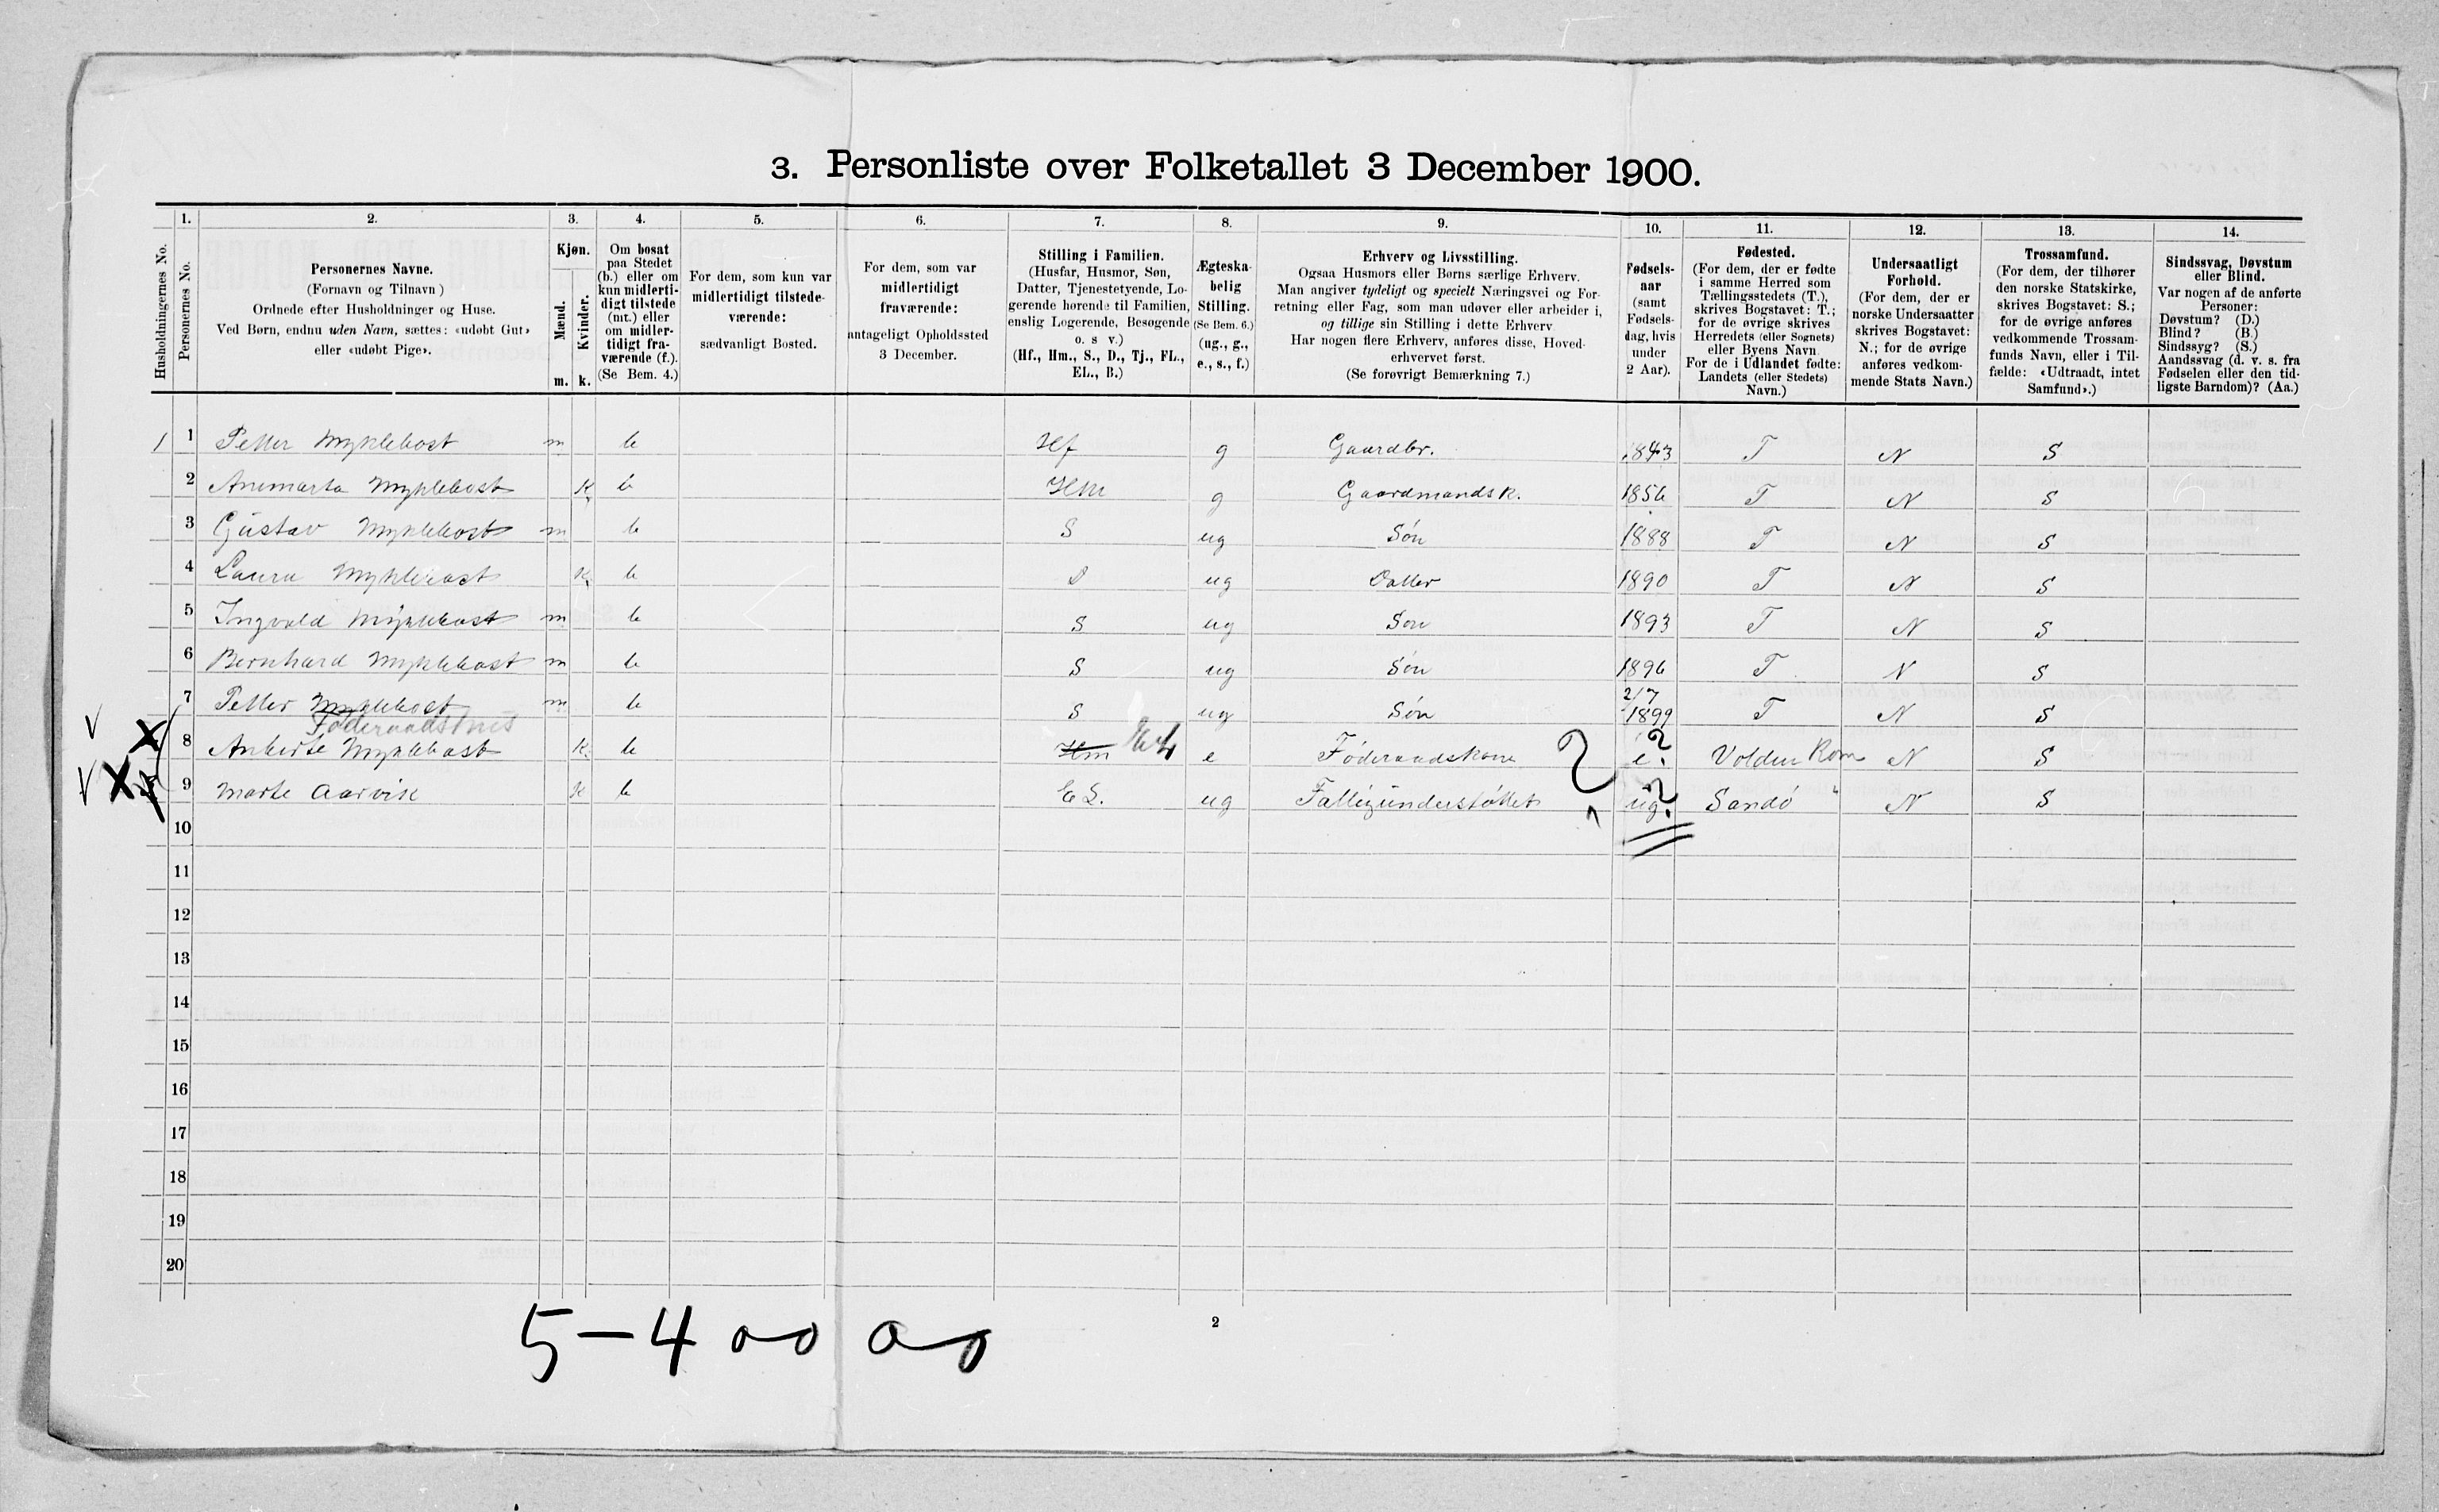 3. Personliste over Folketallet 3 December 1900.
Husholdningernes No.
1.
Personernes No.
2.
Personernes Navne.
(Fornavn og Tilnavn)
Ordnede efter Husholdninger og Huse.
Ved Børn, endnu uden Navn, sættes: «udøbt Gut»
eller «udøbt Pige».
3.
Kjøn.
Mænd.
m.
Kvinder.
k.
4.
Om bosat
paa Stedet
(b.) eller om
kun midlerti-
digt tilstede
(mt.) eller
om midler-
tidigt fra-
værende (f.).
(Se Bem. 4.)
5.
For dem, som kun var
midlertidigt tilstede-
værende:
sædvanligt Bosted.
6.
For dem, som var
midlertidigt
fraværende:
antageligt Opholdssted
3 December.
7.
Stilling i Familien.
(Husfar, Husmor, Søn,
Datter, Tjenestetyende, Lo-
gerende hørende til Familien,
enslig Logerende, Besøgende
o. s v.)
(Hf., Hm., S., D., Tj., FL.,
EL., B.)
8.
Ægteska-
belig
Stilling.
(Se Bem. 6.)
(ug., g.,
e., s., f.)
9.
Erhverv og Livsstilling.
Ogsaa Husmors eller Børns særlige Erhverv.
Man angiver tydeligt og specielt Næringsvei og For-
retning eller Fag, som man udøver eller arbeider i,
og tillige sin Stilling i dette Erhverv
Har nogen flere Erhverv, anføres disse, Hoved-
erhvervet først.
(Se forøvrigt Bemærkning 7.)
10.
Fødsels-
aar
(samt
Fødsels-
dag, hvis
under
2 Aar).
11.
Fødested.
(For dem, der er fødte
i samme Herred som
Tællingsstedets (T.),
skrives Bogstavet: T.;
for de øvrige skrives
Herredets (eller Sognets)
eller Byens Navn
For de i Udlandet fødte:
Landets (eller Stedets)
Navn.)
12.
Undersaatligt
Forhold.
(For dem, der er
norske Undersaatter
skrives Bogstavet:
N.; for de øvrige
anføres vedkom-
mende Stats Navn.)
13.
Trossamfund.
(For dem, der tilhører
den norske Statskirke,
skrives Bogstavet: S.;
for de øvrige anføres
vedkommende Trossam-
funds Navn, eller i Til-
fælde: «Udtraadt, intet
Samfund».)
14.
Sindssvag, Døvstum
eller Blind.
Var nogen af de anførte
Personer:
Døvstum? (D.)
Blind? (B.)
Sindssyg? (S.)
Aandssvag (d. v. s. fra
Fødselen eller den tid-
ligste Barndom)? (Aa.)
1 1 Petter Myklebost m b Hf g Gaardbr. 1843 T N S
2 Annmarta Myklebost K b Hm g Gaardmandsk. 1856 T N S
3 Gustav Myklebost m b S ug Søn 1888 T N S
4 Laura Myklebost K b D ug Datter 1890 T N S
5 Ingvald Myklebost m b S ug Søn 1893 T N S
6 Bernhard Myklebost m b S ug Søn 1896 T N S
7 Petter Myklebost m b S ug Søn 2/7 1899 T N S
Føderaadshus
8 Anberte Myklebost K b Hm EL e Føderaadskone e ? Volden Rom N S
9 Marte Aarvik K b EL. ug Fattigunderstøttet ug ? Sandö " N S
10
11
12
13
14
15
16
17
18
19
20
5-4 00 00
2